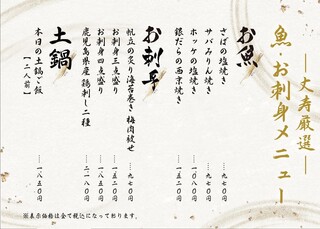 ―丈寿厳選―
魚・お刺身メニュー
お魚
さばの塩焼き ―九七〇円
サバみりん焼き ―九七〇円
ホッケの塩焼き ―一〇八〇円
銀だらの西京焼き ―一五二〇円
お刺身
帆立の炙り海苔巻き 梅肉故せ …九七〇円
お刺身三点盛り ―一五二〇円
お刺身四点盛り ―一八五〇円
鹿児島県産鶏刺し二種 ―二一八〇円
土鍋
本日の土鍋ご飯 ―一八五〇円
【二人前】
※表示価格は全て税込になっております。